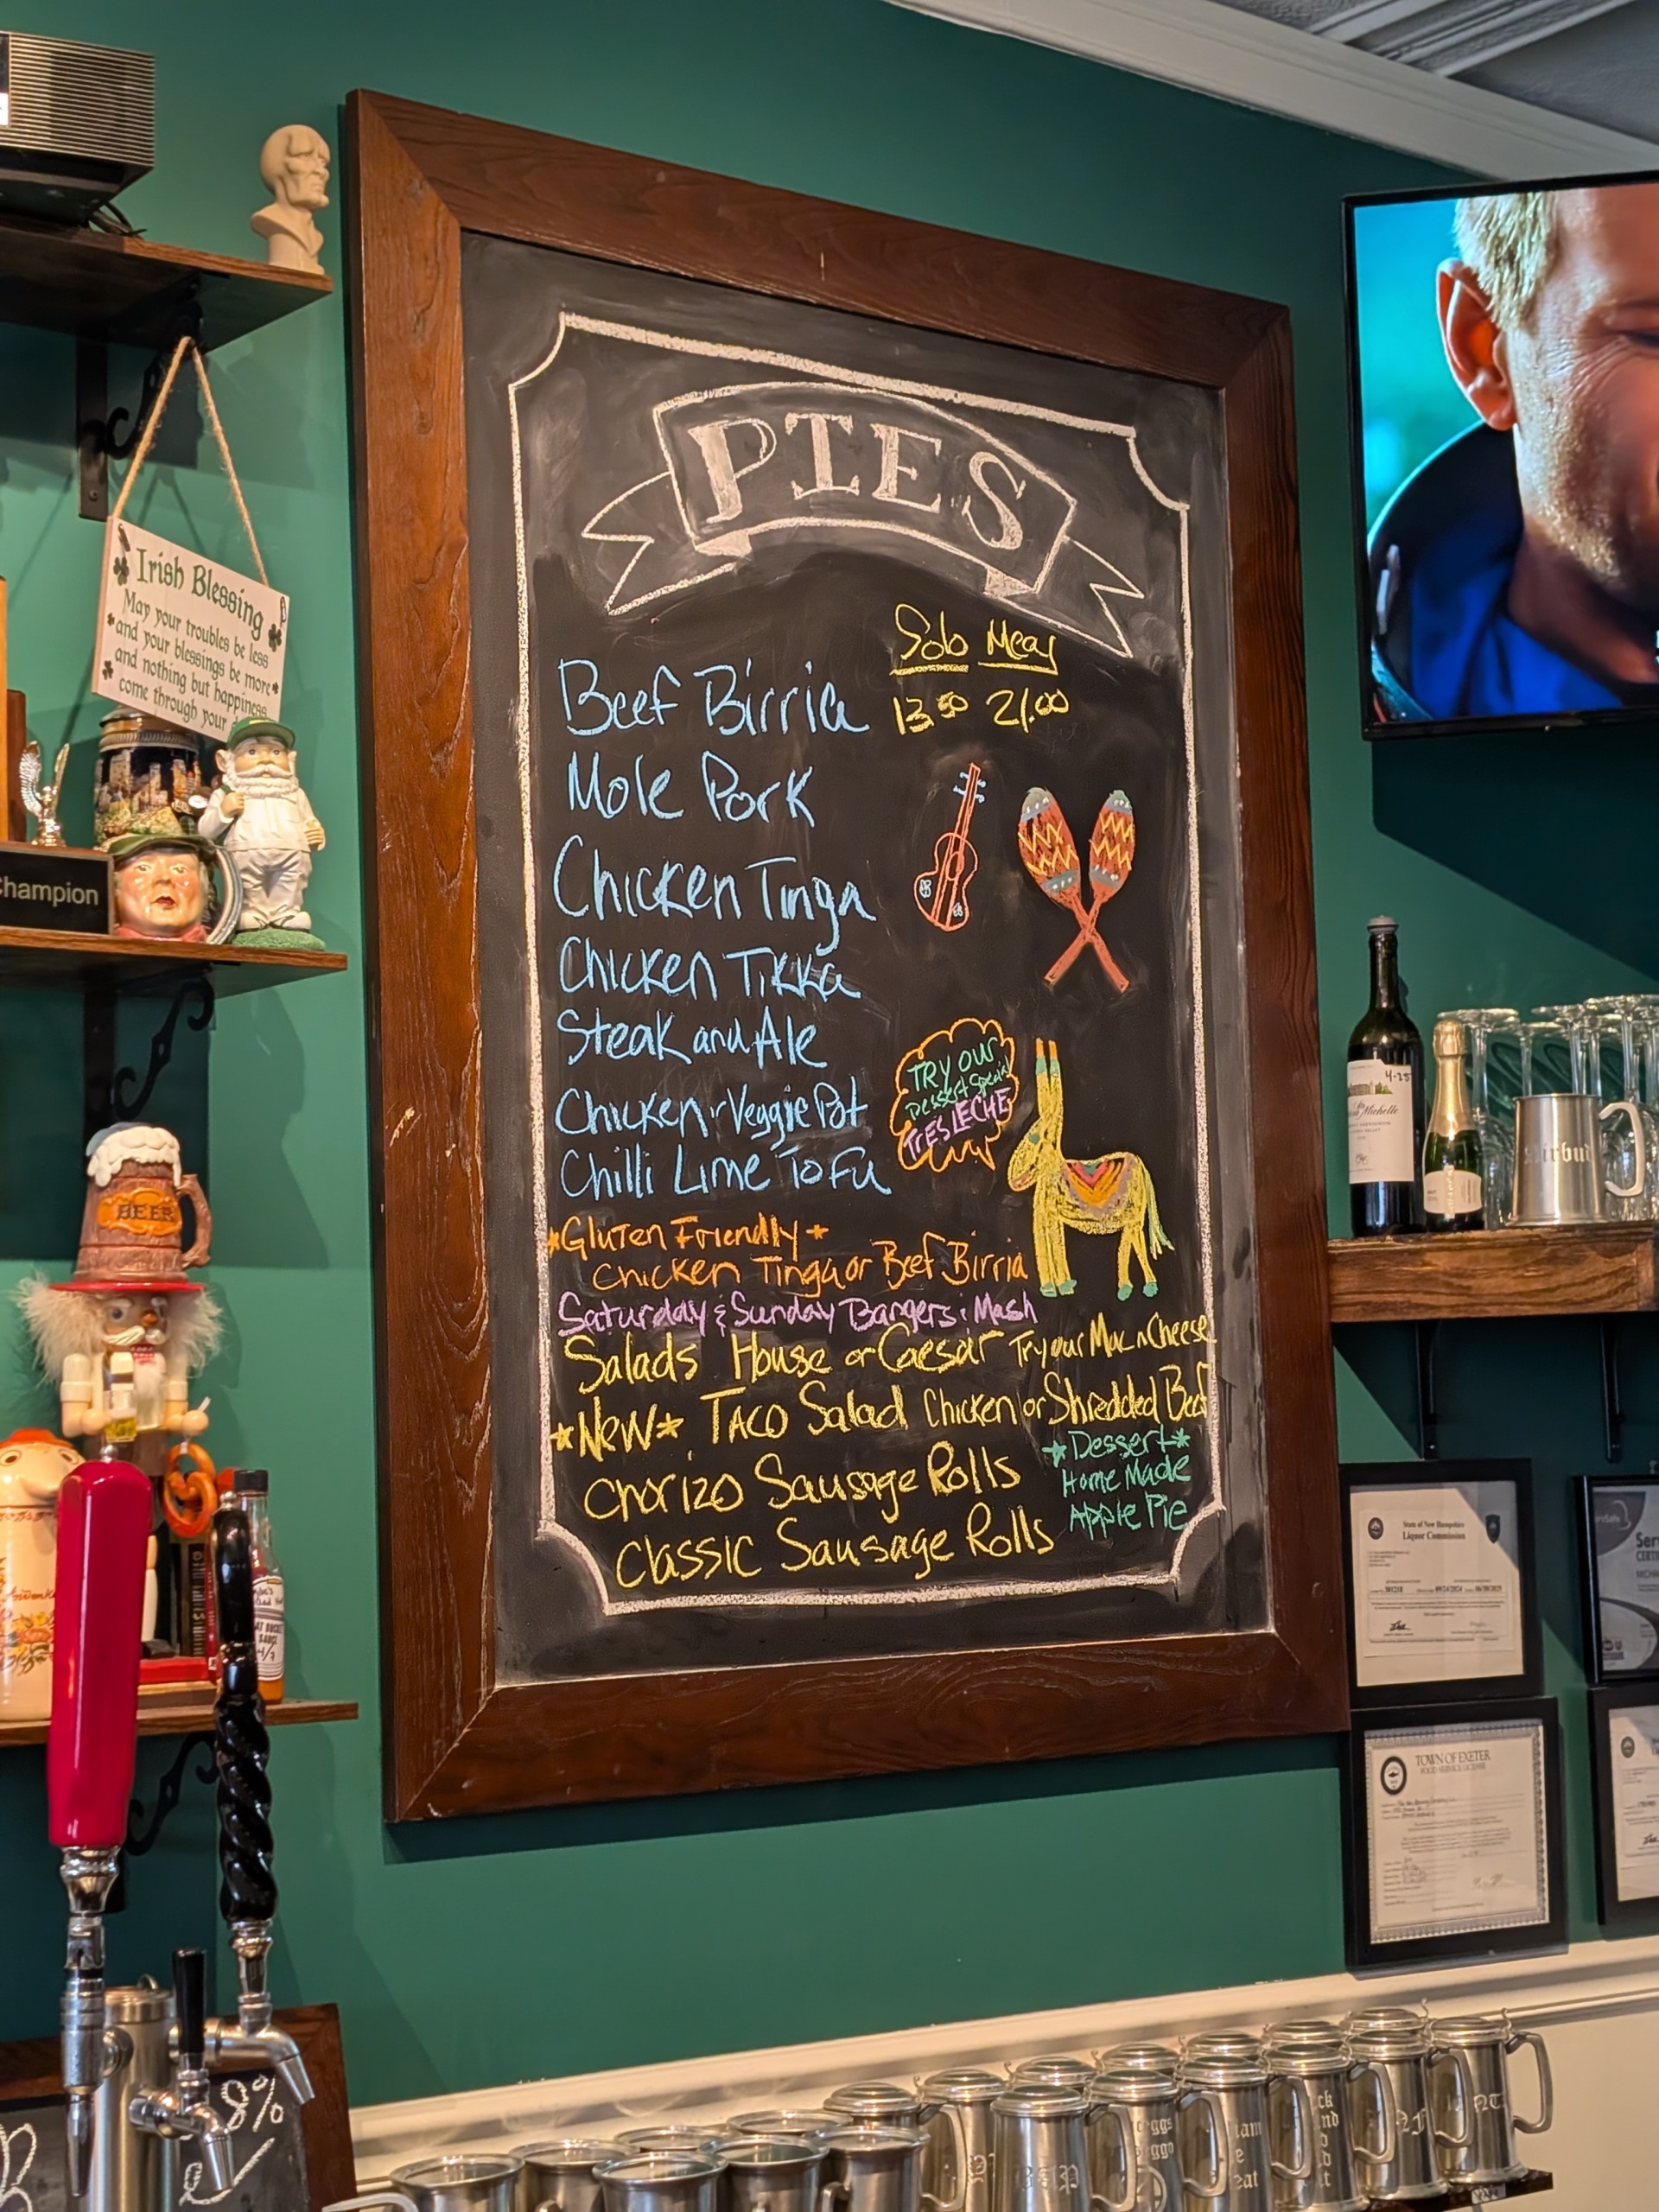 PIES
Solo Meal
Beef Birria 13.50 21.00
Mole Pork
Chicken Tinga
Chicken Tikka
Steak and Ale
Chicken Veggie Pot
Chilli Lime Tofu
TRY our
Dessert Special
TrES LECHE
*Gluten Friendly*
Chicken Tinga or Beef Birria
Saturday & Sunday Bangers & Mash
Salads House or Caesar Try our Mac n Cheese
*New* TACO Salad Chicken or Shredded Beef
Chorizo Sausage Rolls
Classic Sausage Rolls
*Dessert*
Home Made
Apple Pie
Irish Blessing
May your troubles be less
and your blessings be more
and nothing but happiness
come through your
Champion
BEER
4-25
Michelle
State of New Hampshire
Liquor Commission
TOWN OF EXETER
FOOD SERVICE LICENSE
8%